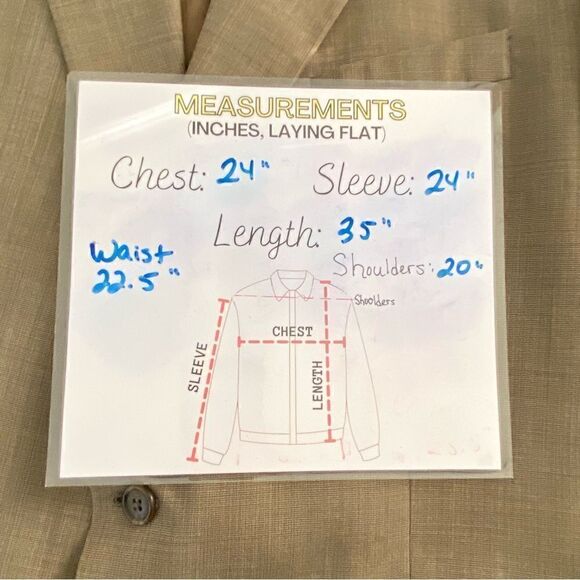 MEASUREMENTS
(INCHES, LAYING FLAT)
Chest: 24" Sleeve: 24"
Length: 35"
Waist
22.5"
Shoulders: 20"
Shoolders
CHEST
SLEEVE
LENGTH